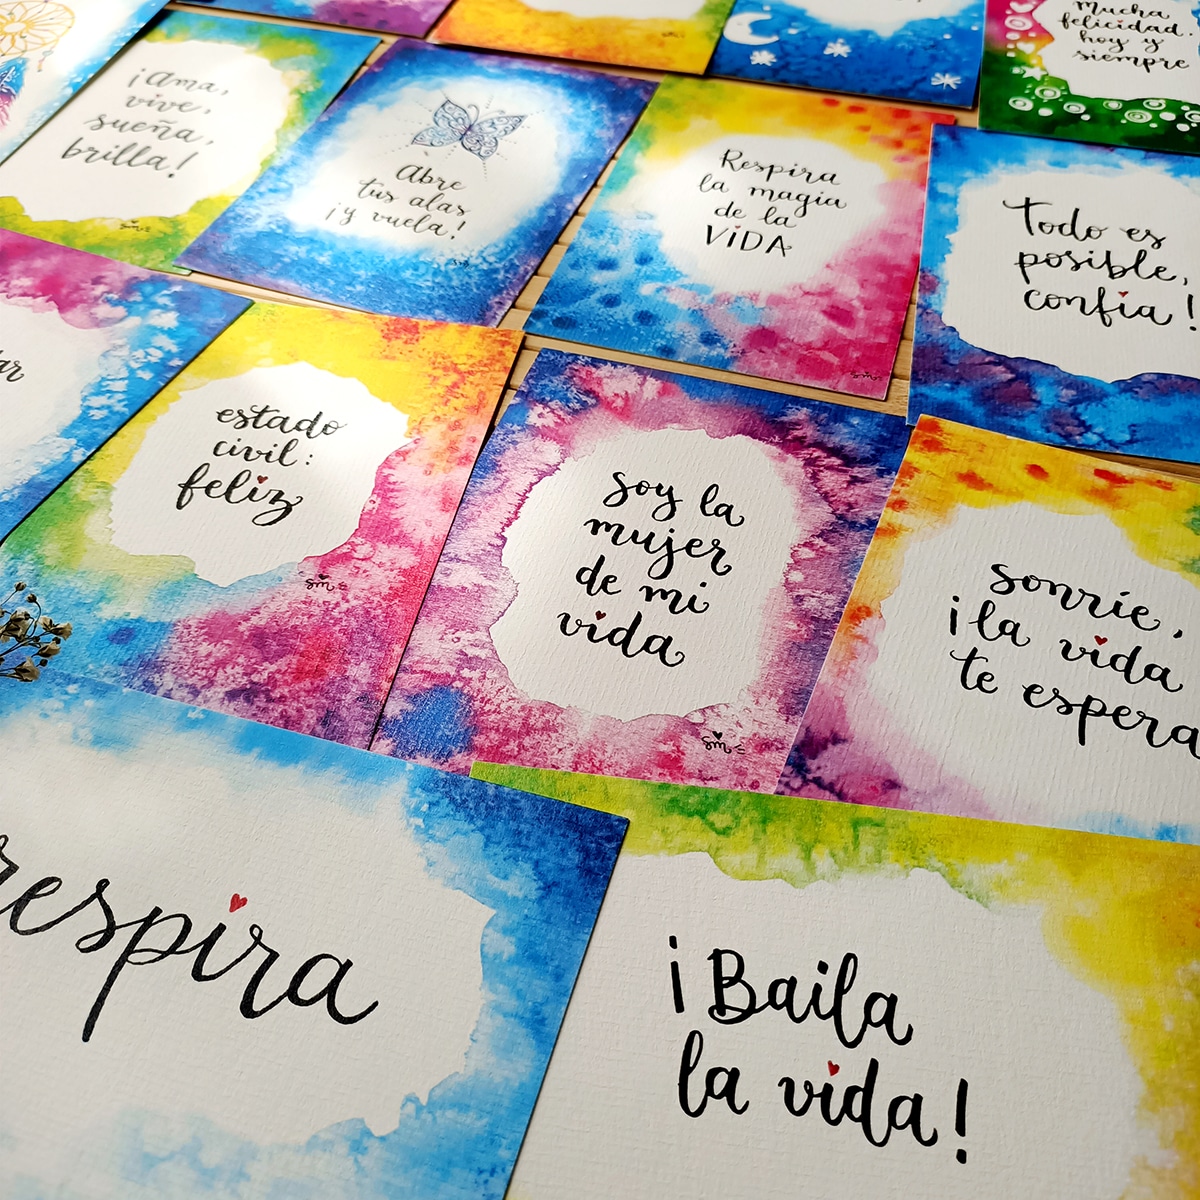 Mucha
felicidad.
hoy y
siempre
¡Ama,
vive,
sueña,
brilla!
Abre
tus alas
¡y vuela!
Respira
la magia
de la
ViDA
Todo es
posible,
confía!
estado
civil:
feliz
sm
soy la
mujer
de mi
vida
sm
sonríe,
¡la vida
te espera
respira
¡Baila
la vida!